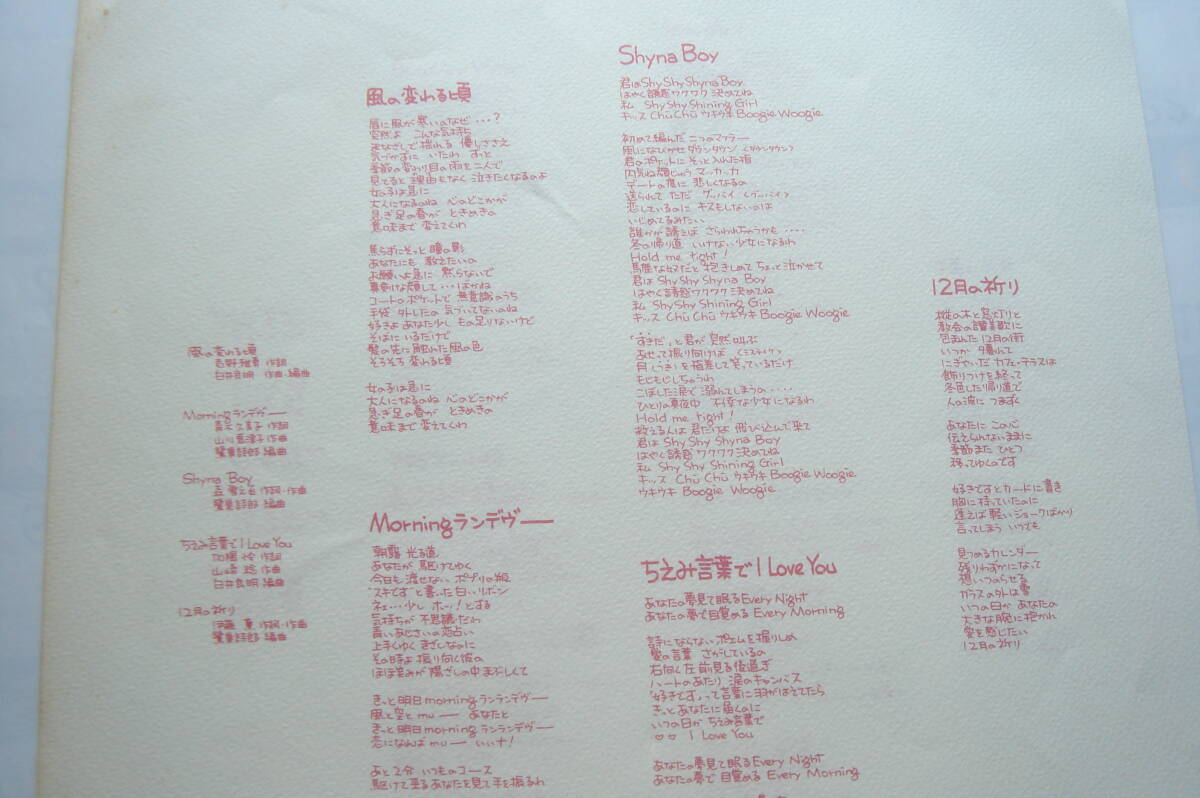 風の変わる頃
吉野雅夏 作詞
白井良明 作曲・編曲
Morningランデヴー
山川恵津子 作曲
鷺巣詩郎 編曲
Shyna Boy
森雪之丞 作詞・作曲
鷺巣詩郎 編曲
ちえみ言葉で I Love You
作詞
作曲
白井良明 編曲
12月の祈り
伊藤 薫 作詞・作曲
鷺巣詩郎 編曲
風の変わる頃
唇に風が寒いのなぜ…?
突然よ こんな気持ち
まなざしで揺れる 優しささえ
気づかずに いたわ ずっと
季節の変わり目の雨を二人で
見てると 理由もなく 泣きたくなるのよ
女の子は急に
大人になるのね 心のどこかが
急ぎ足の春が ときめきの
意味まで 変えてくわ
焦らずにそっと 瞳の影
あなたにも 教えたいの
お願いよ急に 黙らないで
真剣な顔して…ばかね
コートのポケットで 無意識のうち
手袋 外したの 気づいてないのね
好きよ あなた少し もの足りないけど
そばに いるだけで
髪の先に触れた風の色
そろそろ 変わる頃
女の子は急に
大人になるのね 心のどこかが
急ぎ足の春が ときめきの
意味まで 変えてくわ
Morningランデヴー
朝露 光る道
あなたが 駆けてゆく
今日も 渡せない ポプリの瓶
“スキです”と書いた 白いリボン
ネェ…少し ホッ!とする
気持ちが 不思議だわ
青いあじさいの 恋占い
上手くゆく きざしなのに
その時よ 振り向く彼の
ほほ笑みが 陽ざしの中 まぶしくて
きっと明日 morning ランランデヴー
風と空と mu— あなたと
きっと明日 morning ランランデヴー
恋になんば mu— いいナ!
あと2分 いつものコース
駆けて来るあなたを見て 手を振るわ
Shyna Boy
君は Shy Shy Shyna Boy
はやく誘惑 ワクワク 決めてね
私 Shy Shy Shining Girl
キッス Chu Chu ウキウキ Boogie Woogie
初めて編んだ 二つのマフラー
風になびかせ ダウンタウン <ダウンタウン>
君のポケットに そっと入れた指
内気ね 顔じゅう マッカッカ
デートの度に 悲しくなるの
送られて ただ グッバイ <グッバイ>
恋しているのに キスもしないのは
いじめてるみたい
誰かが誘えば さらわれちゃうかも・・・・
冬の帰り道 いけない少女になるわ
Hold me tight!
馬鹿な奴だと 抱きしめて ちょっと泣かせて
君は Shy Shy Shyna Boy
はやく誘惑 ワクワク 決めてね
私 Shy Shy Shining Girl
キッス Chu Chu ウキウキ Boogie Woogie
「すきだ」と君が 突然叫ぶ
あせって振り向けば
月(つき)を指差して 笑っているだけ
もじもじしちゃうわ
こぼした涙で 溺れてしまうの・・・・
ひとりの真夜中 不幸な少女になるわ
Hold me tight!
救える人は 君だけな 飛び込んで来て
君は Shy Shy Shyna Boy
はやく誘惑 ワクワク 決めてね
私 Shy Shy Shining Girl
キッス Chu Chu ウキウキ Boogie Woogie
ウキウキ Boogie Woogie
ちえみ言葉で I Love You
あなたの夢見て眠る Every Night
あなたの夢で目覚める Every Morning
詩にならないポエムを握りしめ
愛の言葉 さがしているの
右向く左 前見る後過ぎ
ハートのあたり 涙のキャンバス
「好きです」って言葉に羽がはえてたら
きっとあなたに届くのに
いつの日か ちえみ言葉で
♡♡ I Love You
あなたの夢見て眠る Every Night
あなたの夢で 目覚める Every Morning
12月の祈り
樅の木と窓灯りと
教会の讃美歌に
包まれた 12月の街
いつか 暮れて
にぎやいだ カフェ・テラスは
飾りつけを終って
冬色した帰り道で
人の波に つまずく
あなたに この心
伝えられないままに
季節また ひとつ
移ってゆくのです
好きですと カードに書き
胸に持っていたのに
逢えば 軽いジョークばかり
言ってしまう いつでも
見つめるカレンダー
残りわずかになって
想いつのらせる
ガラスの外は雪
いつの日か あなたの
大きな腕に抱かれ
愛を感じたい
12月の祈り